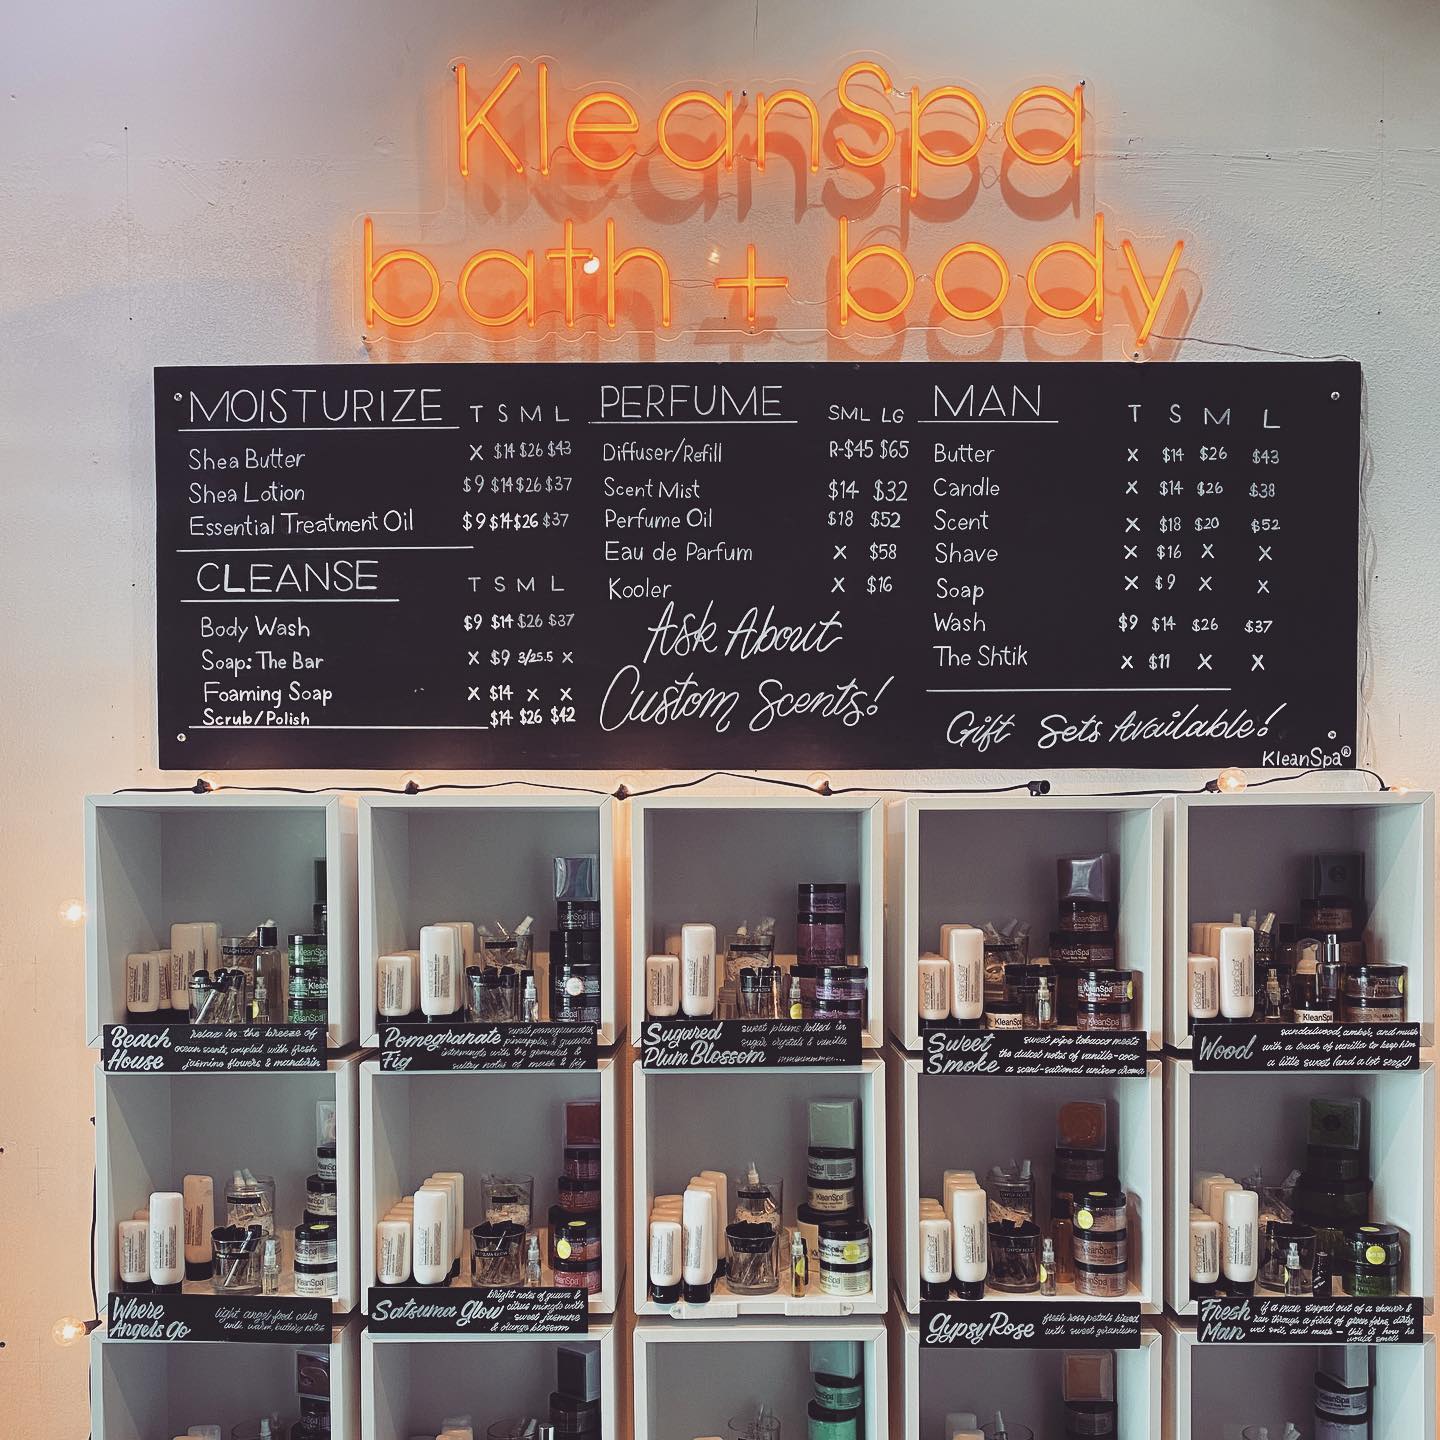 KleanSpa
bath + body
MOISTURIZE T S M L
Shea Butter X $14 $26 $43
Shea Lotion $9 $14 $26 $37
Essential Treatment Oil $9 $14 $26 $37
CLEANSE T S M L
Body Wash $9 $14 $26 $37
Soap: The Bar X $9 3/25.5 X
Foaming Soap X $14 X X
Scrub/Polish $14 $26 $42
PERFUME SML LG
Diffuser/Refill R-$45 $65
Scent Mist $14 $32
Perfume Oil $18 $52
Eau de Parfum X $58
Kooler X $16
Ask About
Custom Scents!
MAN T S M L
Butter X $14 $26 $43
Candle X $14 $26 $38
Scent X $18 $20 $52
Shave X $16 X X
Soap X $9 X X
Wash $9 $14 $26 $37
The Shtik X $11 X X
Gift Sets Available!
KleanSpa®
Beach House
relax in the breeze of
ocean scents, coupled with fresh
jasmine flowers & mandarin
Pomegranate
Fig
sweet pomegranates,
pineapples & grapes
intermingle with the grounded &
sultry notes of musk & fig
Sugared
Plum Blossom
sweet plums rolled in
sugar crystals & vanilla
Sweet
Smoke
sweet pipe tobacco meets
the dulcet notes of vanilla-coco
a scent-sational unisex aroma
Wood
sandalwood, amber, and musk
with a touch of vanilla to keep him
a little sweet (and a lot sexy!)
Where
Angels Go
light angel food cake
with warm, buttery notes
Satsuma Glow
bright notes of guava &
citrus mingle with
sweet jasmine
& orange blossom
Gypsy Rose
fresh rose petals kissed
with sweet geranium
Fresh
Man
if a man stepped out of a shower &
ran through a field of green ferns, dirty,
wet soil, and musk - this is how he
would smell